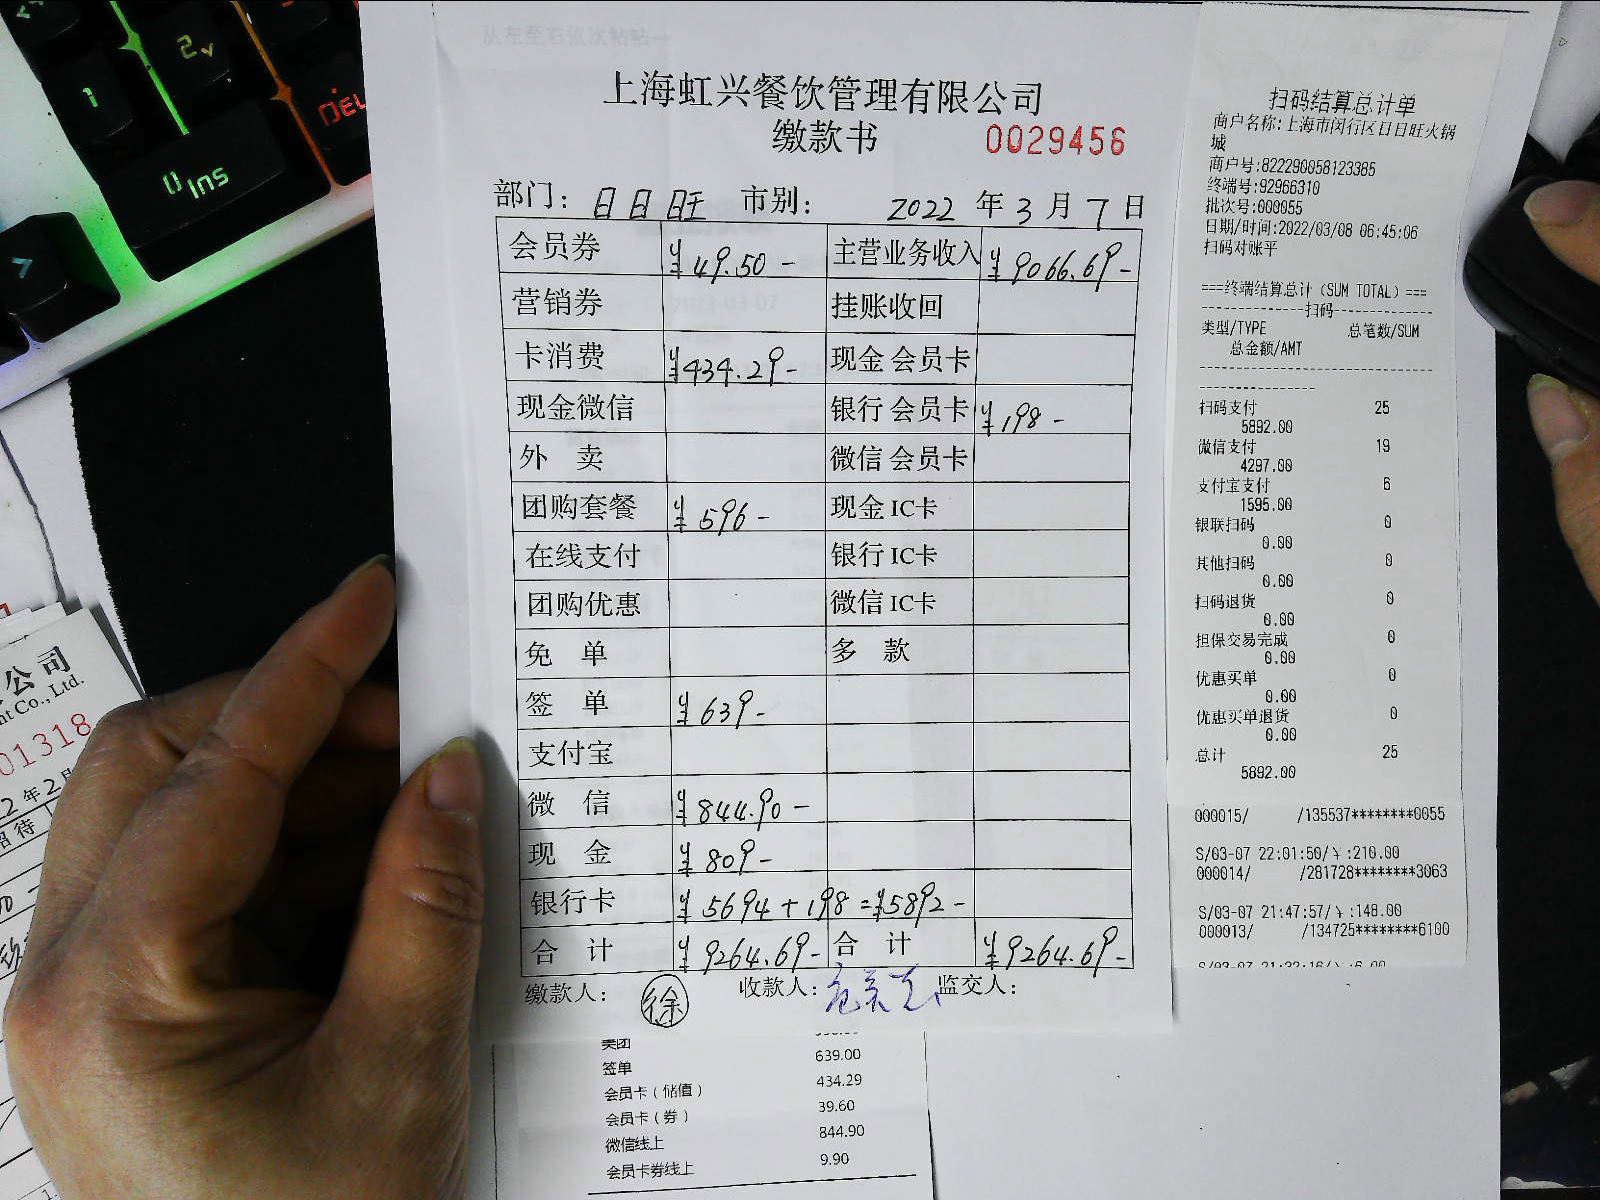 从左至右依次粘贴
上海虹兴餐饮管理有限公司
缴款书 0029456
部门: 日日旺 市别: 2022 年 3 月 7 日
会员券 ¥49.50- 主营业务收入 ¥9066.69-
营销券 挂账收回
卡消费 ¥434.29- 现金 会员卡
现金微信 银行 会员卡 ¥198-
外 卖 微信 会员卡
团购套餐 ¥596- 现金 IC卡
在线支付 银行 IC卡
团购优惠 微信 IC卡
免 单 多 款
签 单 ¥639-
支付宝
微 信 ¥844.90-
现 金 ¥809-
银行卡 ¥5694+198=¥5892-
合 计 ¥9264.69- 合 计 ¥9264.69-
缴款人: 徐 收款人: 监交人:
美团
签单 639.00
会员卡（储值） 434.29
会员卡（券） 39.60
微信线上 844.90
会员卡券线上 9.90
扫码结算总计单
商户名称:上海市闵行区日日旺火锅
城
商户号:822290058123385
终端号:92966310
批次号:000055
日期/时间:2022/03/08 06:45:06
扫码对账平
===终端结算总计（SUM TOTAL）===
---------------扫码---------------
类型/TYPE 总笔数/SUM
总金额/AMT
扫码支付 25
5892.00
微信支付 19
4297.00
支付宝支付 6
1595.00
银联扫码 0
0.00
其他扫码 0
0.00
扫码退货 0
0.00
担保交易完成 0
0.00
优惠买单 0
0.00
优惠买单退货 0
0.00
总计 25
5892.00
000015/ /135537********0055
S/03-07 22:01:50/¥:210.00
000014/ /281728********3063
S/03-07 21:47:57/¥:148.00
000013/ /134725********6100
S/03-07 21:32:16/¥:6.00
公司
nt Co., Ltd.
01318
22 年 2 月
招待
1
2
0 Ins
DEL